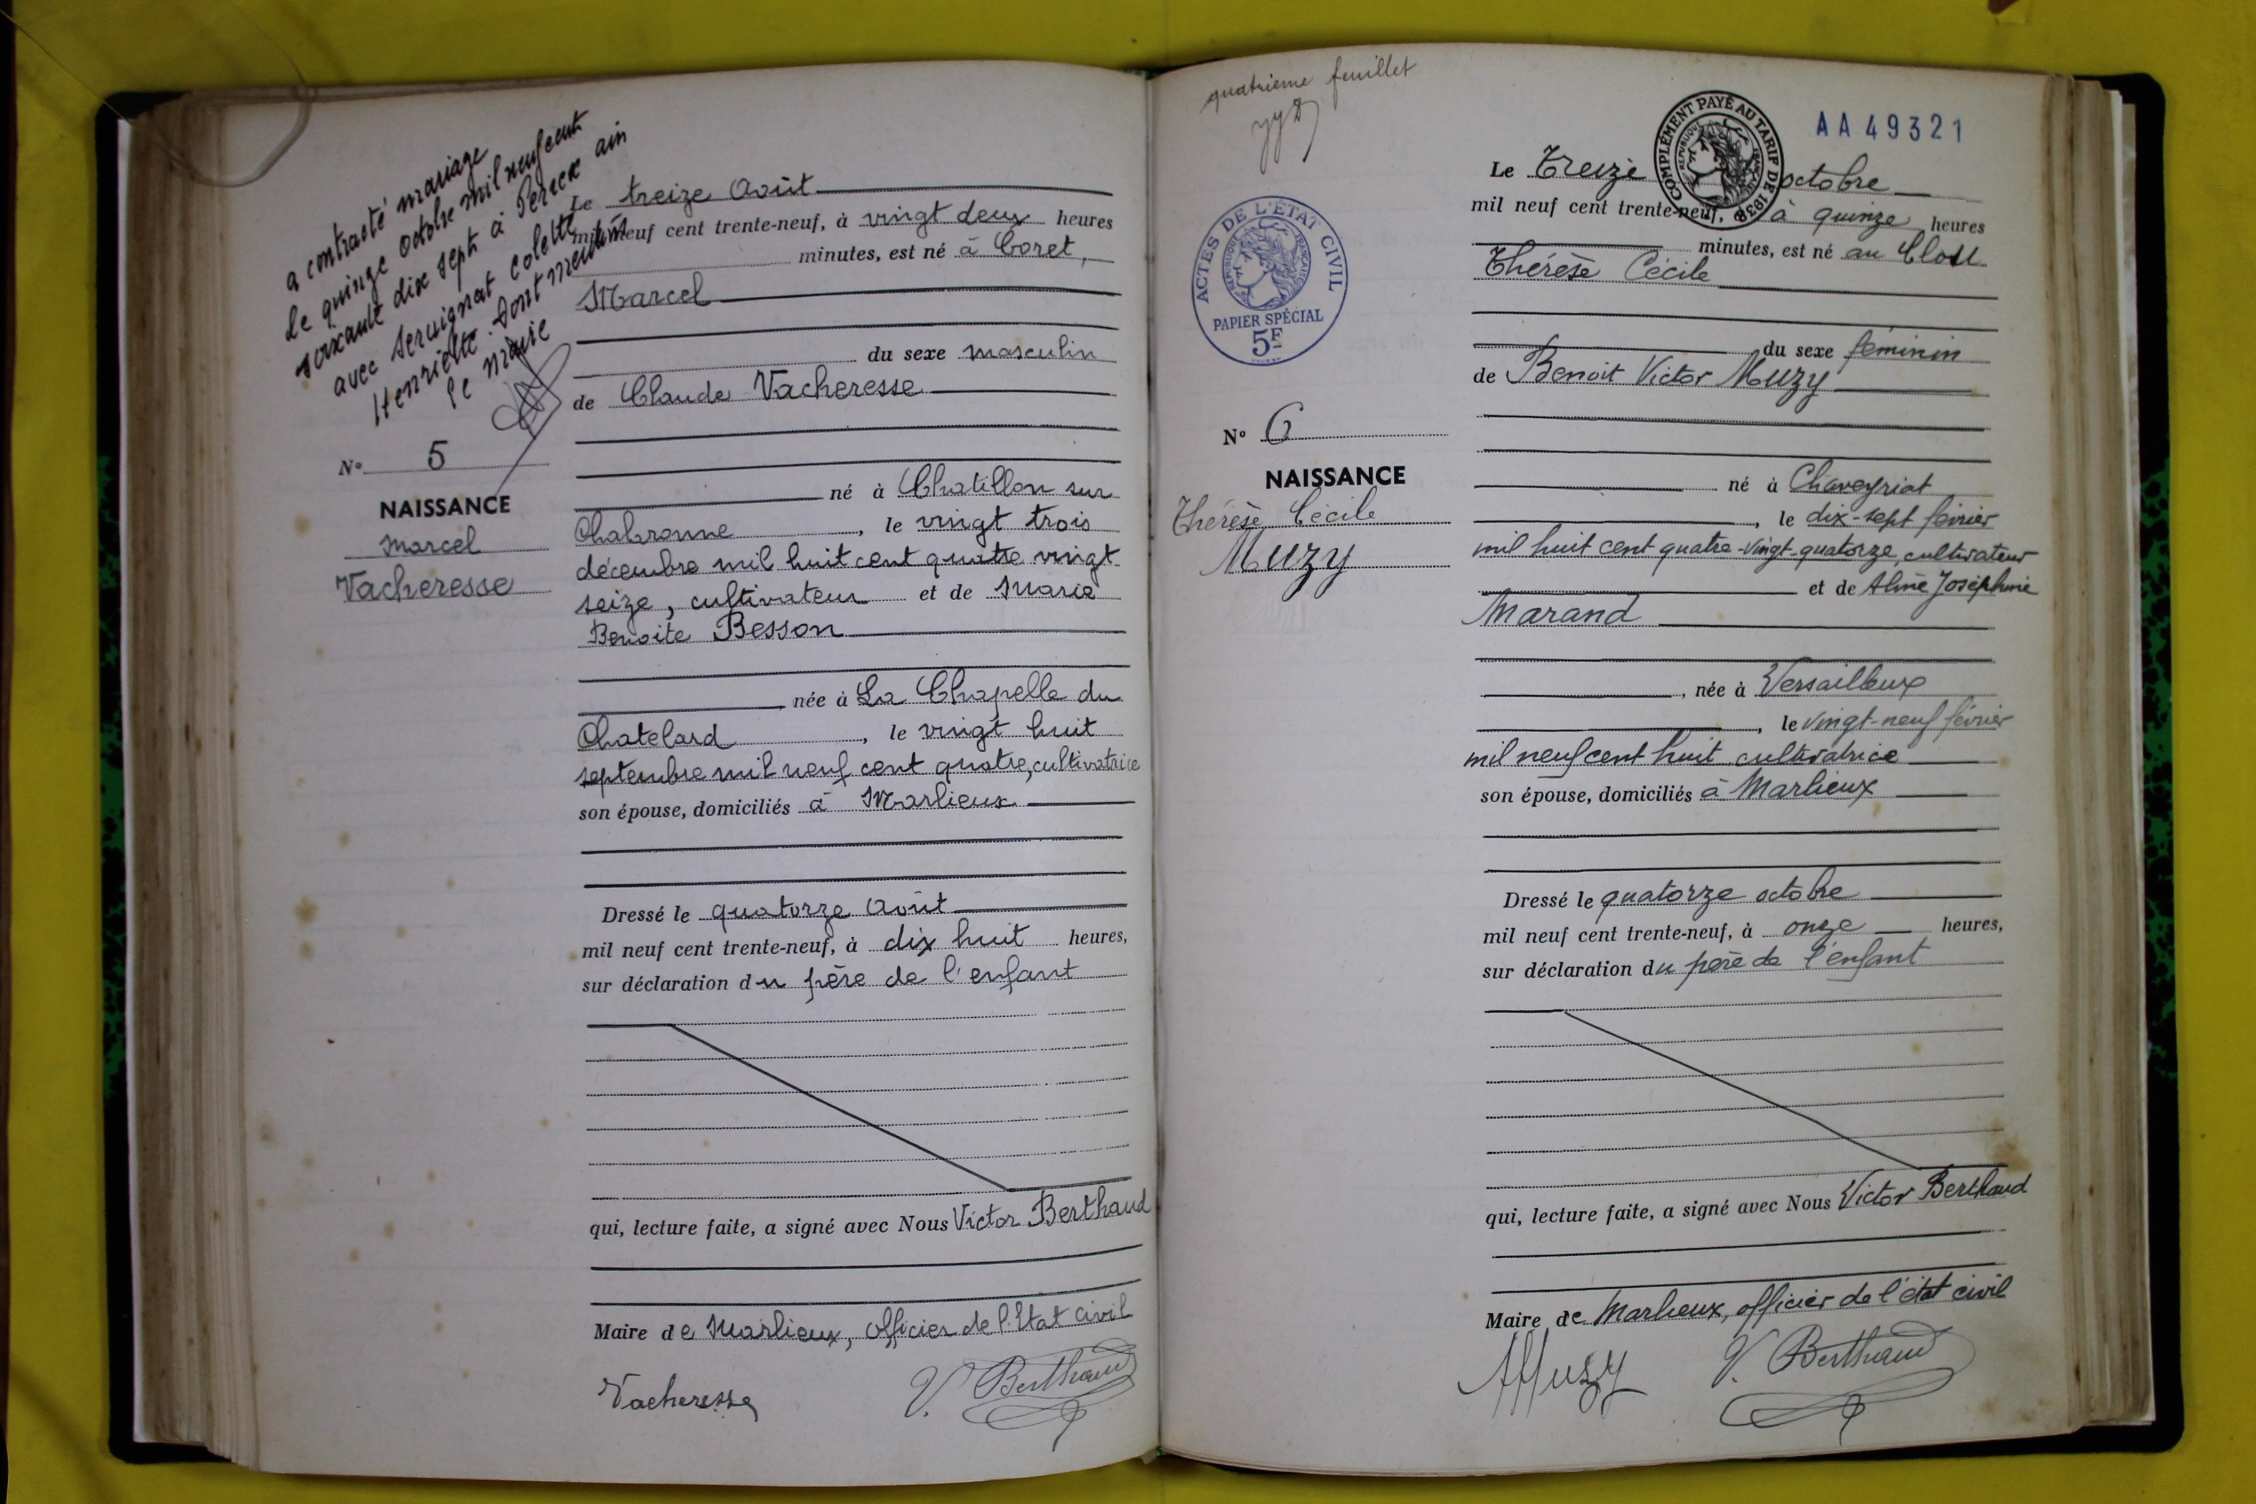 a contracté mariage
le quinze octobre mil neuf cent
soixante dix sept à Pérex ain
avec Servignat Colette
Henriette dont mention
le maire
Le treize Août
mil neuf cent trente-neuf, à vingt deux heures
minutes, est né à Coret,
Marcel
du sexe masculin
de Claude Vacheresse
né à Chatillon sur
Chalaronne, le vingt trois
décembre mil huit cent quatre vingt
seize, cultivateur et de Marie
Benoite Besson
née à La Chapelle du
Chatelard, le vingt huit
septembre mil neuf cent quatre, cultivatrice
son épouse, domiciliés à Marlieux
Dressé le quatorze Août
mil neuf cent trente-neuf, à dix huit heures,
sur déclaration du père de l'enfant
qui, lecture faite, a signé avec Nous Victor Berthaud
Maire de Marlieux, officier de l'Etat civil
Vacheresse V. Berthaud
No 5
NAISSANCE
Marcel
Vacheresse
quatrième feuillet
ACTES DE L'ÉTAT CIVIL
RÉPUBLIQUE FRANÇAISE
PAPIER SPÉCIAL
5F
No 6
NAISSANCE
Thérèse Cécile
Muzy
COMPLÉMENT PAYÉ AU TARIF DE 1938
RÉPUBLIQUE FRANÇAISE
AA 49321
Le Treize octobre
mil neuf cent trente-neuf, à quinze heures
minutes, est né au Clou
Thérèse Cécile
du sexe féminin
de Benoit Victor Muzy
né à Chaveyriat
, le dix-sept février
mil huit cent quatre-vingt-quatorze, cultivateur
et de Aline Joséphine
Marand
, née à Versailleux
, le vingt-neuf février
mil neuf cent huit cultivatrice
son épouse, domiciliés à Marlieux
Dressé le quatorze octobre
mil neuf cent trente-neuf, à onze heures,
sur déclaration du père de l'enfant
qui, lecture faite, a signé avec Nous Victor Berthaud
Maire de Marlieux, officier de l'état civil
Muzy V. Berthaud